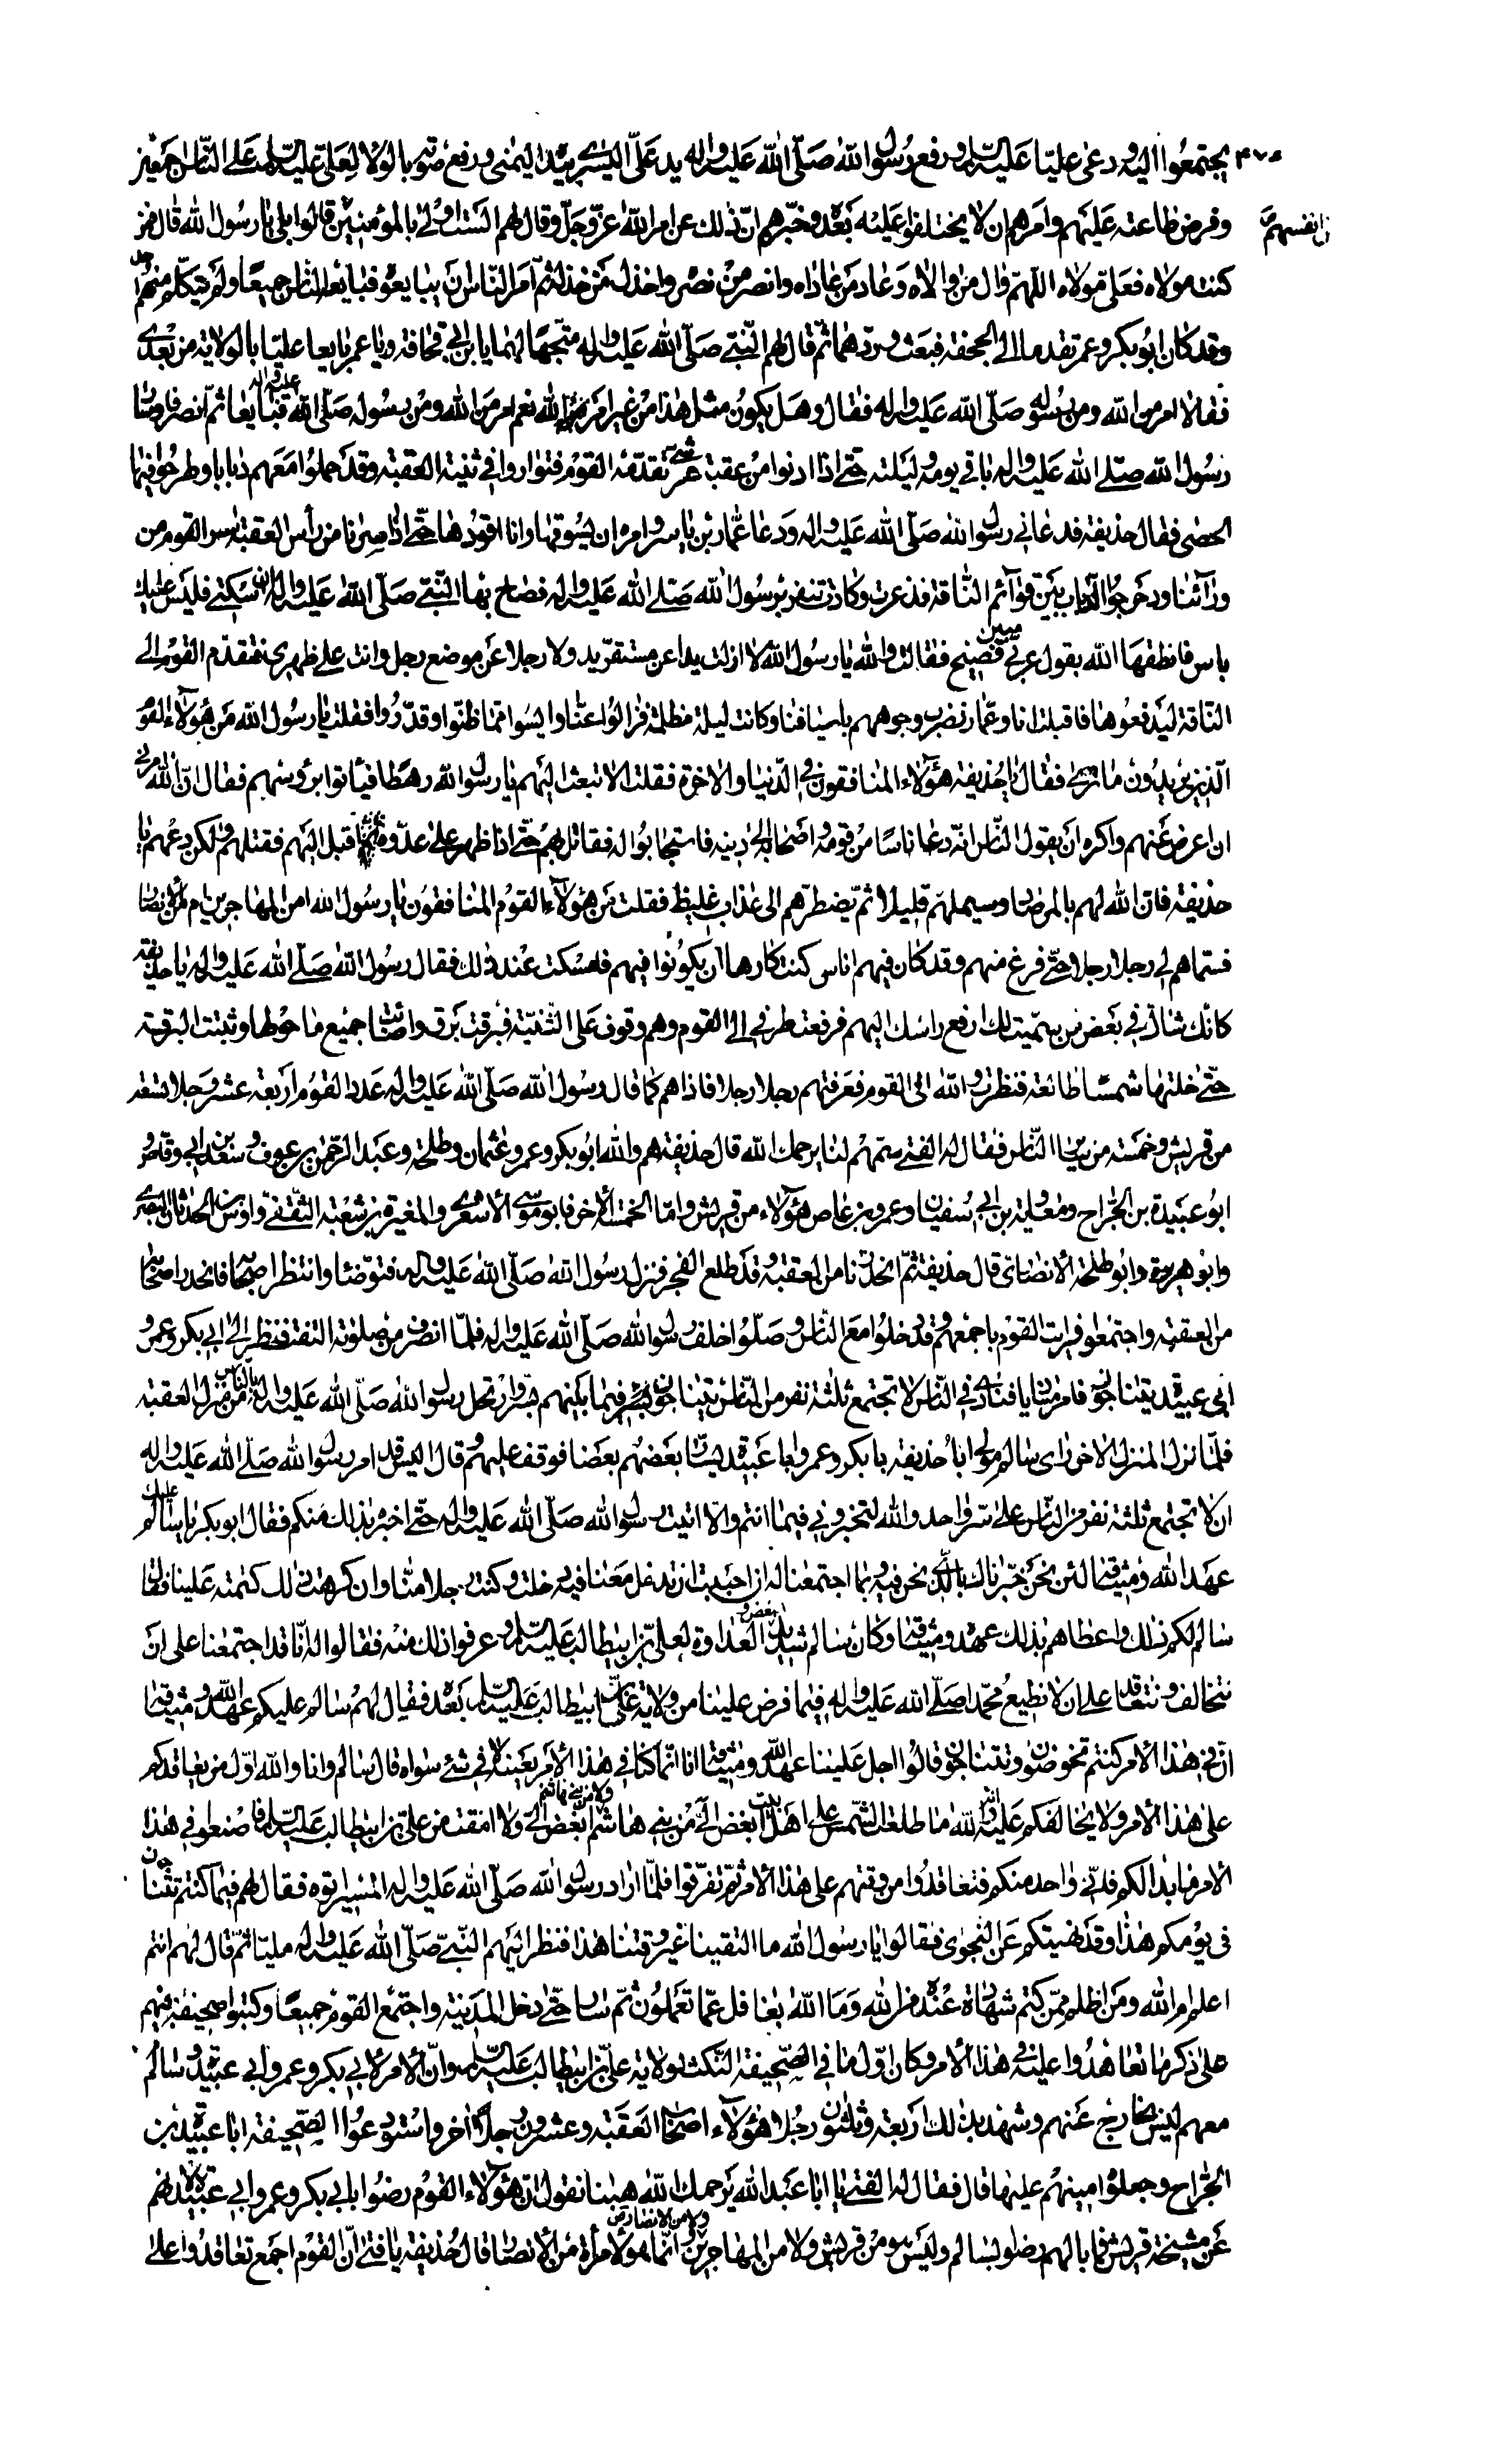 ٤٧٠ يجتمعوا اليه ودعى عليا عليه السلم ورفع رسول الله صلى الله عليه واله يد علي اليسرى بيده اليمنى ورفع صوته بالولاء لعلي عليه السلم على الناس اجمعين
وفرض طاعته عليهم وامرهم ان لا يختلفوا عليه بعده وخبرهم ان ذلك عن امر الله عز وجل وقال لهم الست اولى بالمؤمنين من انفسهم قالوا بلى يا رسول الله قال فمن
كنت مولاه فعلي مولاه اللهم وال من والاه وعاد من عاداه وانصر من نصره واخذل من خذله ثم امر الناس ان يبايعوه فبايعه الناس جميعا ولم يتكلم منهم احد
وقد كان ابو بكر وعمر تقدما الى الجحفة فبعث وردهما ثم قال لهم النبي صلى الله عليه واله متجهما لهما يابن ابي قحافة ويا عمر بايعا عليا بالولاية من بعدي
فقالا امر من الله ومن رسوله صلى الله عليه واله فقال وهل يكون مثل هذا من غير امر الله نعم امر من الله ومن رسوله صلى الله عليه واله فبايعا ثم انصرفا وسار
رسول الله صلى الله عليه واله باقي يومه وليلته حتى اذا دنوا من عقبة هرشى تقدمه القوم فتواروا في ثنية العقبة وقد حملوا معهم دبابا وطرحوا فيها
الحصى فقال حذيفة فدعاني رسول الله صلى الله عليه واله ودعا عمار بن ياسر وامره ان يسوقها وانا اقودها حتى اذا صرنا من راس العقبة القوم من
ورآئنا ودحرجوا الدباب بين قوآئم الناقة فذعرت وكادت تنفر برسول الله صلى الله عليه واله فصاح بها النبي صلى الله عليه واله ان اسكني فليس عليك
باس فانطقها الله بقول عربي مبين فصيح فقالت والله يا رسول الله لا ازلت يدا عن مستقر يد ولا رجلا عن موضع رجل وانت على ظهري فتقدم القوم الى
الناقة ليدفعوها فاقبلت انا وعمار نضرب وجوههم باسيافنا وكانت ليلة مظلمة فزالوا عنا وايسوا مما ظنوا وقدروا فقلت يا رسول الله من هؤلاء القوم
الذين يريدون ما ترى فقال يا حذيفة هؤلاء المنافقون في الدنيا والاخرة فقلت الا تبعث اليهم يا رسول الله رهطا فياتوا برؤسهم فقال ان الله امرني
ان اعرض عنهم واكره ان يقول الناس انه دعا ناسا من قومه واصحابه الى دينه فاستجابوا له فقاتل بهم حتى اذا ظهر على عدوه اقبل اليهم فقتلهم ولكن دعهم يا
حذيفة فان الله لهم بالمرصاد وسيمهلهم قليلا ثم يضطرهم الى عذاب غليظ فقلت من هؤلاء القوم المنافقون يا رسول الله امن المهاجرين ام من الانصار
فسماهم لي رجلا رجلا حتى فرغ منهم وقد كان فيهم اناس كنت كارها ان يكونوا فيهم فامسكت عند ذلك فقال رسول الله صلى الله عليه واله يا حذيفة
كانك شاك في بعض من سميت لك ارفع راسك اليهم فرفعت طرفي الى القوم وهم وقوف على الثنية فبرقت برقة واضائت جميع ما حولها وثبتت البرقة
حتى خلتها شمسا طالعة فنظرت والله الى القوم فعرفتهم رجلا رجلا فاذا هم كما قال رسول الله صلى الله عليه واله عدد القوم اربعة عشر رجلا تسعة
من قريش وخمسة من ساير الناس فقال له الفتى سمهم لنا يرحمك الله قال حذيفة هم والله ابو بكر وعمر وعثمان وطلحة وعبد الرحمن بن عوف وسعد بن ابي وقاص و
ابو عبيدة بن الجراح ومعاوية بن ابي سفيان وعمرو بن عاص هؤلاء من قريش واما الخمسة الاخر فابو موسى الاشعري والمغيرة بن شعبة الثقفي واوس بن الحدثان البصري
وابو هريرة وابو طلحة الانصاري قال حذيفة ثم انحدرنا من العقبة وقد طلع الفجر فنزل رسول الله صلى الله عليه واله فتوضا وانتظر اصحابه فانحدر اصحابه
من العقبة واجتمعوا فرايت القوم باجمعهم وقد دخلوا مع الناس وصلوا خلف رسول الله صلى الله عليه واله فلما انصرف من صلوته التفت فنظر الى ابي بكر وعمر و
ابي عبيدة يتناجون فامر مناديا فنادى في الناس لا تجتمع ثلثة نفر من الناس يتناجون فيما بينهم بسر وارتحل رسول الله صلى الله عليه واله بالناس من منزل العقبة
فلما نزل المنزل الاخر راى سالم مولى ابا حذيفة ابا بكر وعمر وابا عبيدة يسار بعضهم بعضا فوقف عليهم وقال اليس قد امر رسول الله صلى الله عليه واله
ان لا تجتمع ثلثة نفر من الناس على سر واحد والله لتخبروني فيما انتم والا اتيت رسول الله صلى الله عليه واله حتى اخبره بذلك منكم فقال ابو بكر يا سالم عليك
عهد الله وميثاقه لئن نحن خبرناك بالذي نحن فيه وبما اجتمعنا له ان احببت ان تدخل معنا فيه دخلت وكنت رجلا منا وان كرهت ذلك كتمته علينا فقال
سالم لكم ذلك واعطاهم بذلك عهده وميثاقه وكان سالم شديد البغض و العداوة لعلي بن ابيطالب عليه السلم وعرفوا ذلك منه فقالوا له انا قد اجتمعنا على ان
نتحالف ونتعاقد على ان لا نطيع محمدا صلى الله عليه واله فيما فرض علينا من ولاية علي بن ابيطالب عليه السلم بعده فقال لهم سالم عليكم عهد الله وميثاقه
ان في هذا الامر كنتم تخوضون وتتناجون قالوا اجل علينا عهد الله وميثاقه انا انما كنا في هذا الامر بعينه لا في شئ سواه قال سالم وانا والله اول من يعاقدكم
على هذا الامر ولا يخالفكم عليه والله ما طلعت الشمس على اهل بيت ابغض الي من بني هاشم ولا من بني هاشم ابغض الي ولا امقت من علي بن ابيطالب عليه السلم فاصنعوا في هذا
الامر ما بدا لكم فاني واحد منكم فتعاقدوا من وقتهم على هذا الامر ثم تفرقوا فلما اراد رسول الله صلى الله عليه واله المسير اتوه فقال لهم فيما كنتم تتناجون
في يومكم هذا وقد نهيتكم عن النجوى فقالوا يا رسول الله ما التقينا غير وقتنا هذا فنظر اليهم النبي صلى الله عليه واله مليا ثم قال لهم انتم
اعلم ام الله ومن اظلم ممن كتم شهادة عنده من الله وما الله بغافل عما تعملون ثم سار حتى دخل المدينة واجتمع القوم جميعا وكتبوا صحيفة بينهم
على ذكر ما تعاهدوا عليه في هذا الامر وكان اول ما في الصحيفة النكث لولاية علي بن ابيطالب عليه السلم وان الامر لابي بكر وعمر وابي عبيدة وسالم
معهم ليس بخارج عنهم وشهد بذلك اربعة وثلثون رجلا هؤلاء اصحاب العقبة وعشرون رجلا اخر واستودعوا الصحيفة ابا عبيدة بن
الجراح وجعلوه امينهم عليها قال فقال له الفتى يا ابا عبد الله يرحمك الله هبنا نقول ان هؤلاء القوم رضوا بابي بكر وعمر وابي عبيدة لانهم
من مشيخة قريش فما بالهم رضوا بسالم وليس هو من قريش ولا من المهاجرين ولا من الانصار وانما هو لامراة من الانصار قال حذيفة يا فتى ان القوم اجمع تعاقدوا على